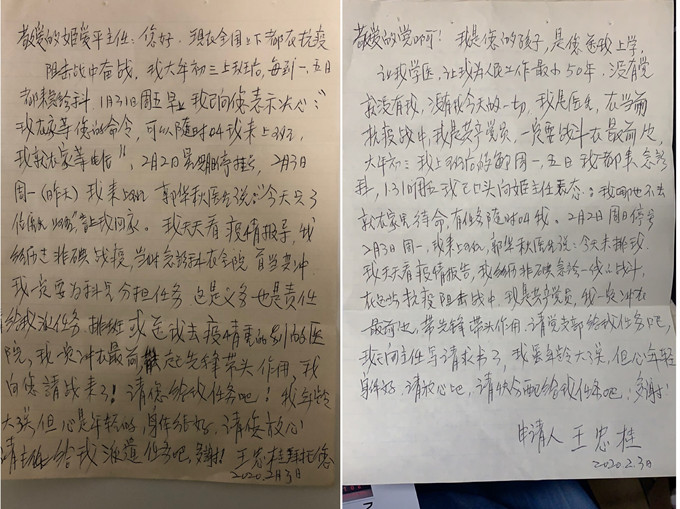 敬爱的姬爱平主任:您好.现在全国上下都在抗疫
阻击战中奋战,我大年初三上班后,每到一.五日
都来急诊科 1月31日周五早上我已向您表示决心:"
我在家等您的命令,可以随时叫我来上班,
我就在家等电话",2月2日暑期停挂,2月3日
周一(昨天)我来上班 郭华秋医生说:"今天只3
位医生
我天天看疫情报导,我
经历过非碘战疫,当时急诊科在全院首当其冲.
我一定要为科里分担任务 这是义务也是责任
给我派任务 排班或送我去疫情重的别的医
院,我一定冲在最前,献应先锋带头作用,我
向您請战来了!请您给我任务吧!我年龄
大了些,但心是年轻的,身体结好,请您放心
请主任给我派遣任务吧,多谢! 王忠桂拜托您
2020.2月3日
敬爱的党啊!我是您的孩子,是您送我上学,
让我学医,让我为人民工作最少50年,没有党
就没有我,没有我今天的一切,我是医生,在当前
抗疫战中,我是共产党员,一定要战斗在最前边,
大年初三我上班后的每周一,五日我都来急诊
科,1.31日周五我已口头向姬主任表态:我哪也不去
就在家里待命,有任务随时叫我。2月2日周日停诊
2月3日周一,我来上班,郭华秋医生说:今天未排我.
我天天看疫情报告,我经历非碘急诊一线的战斗,
在这些抗疫阻击战中,我是共产党员,我一定冲在
最前边,带先锋带头作用.请党支部给我任务吧,
我已向主任写请求书了,我虽年龄大了些,但心年轻
身体好.请放心吧,请快分配给我任务吧,多谢!
申请人 王忠桂
2020.2.3日